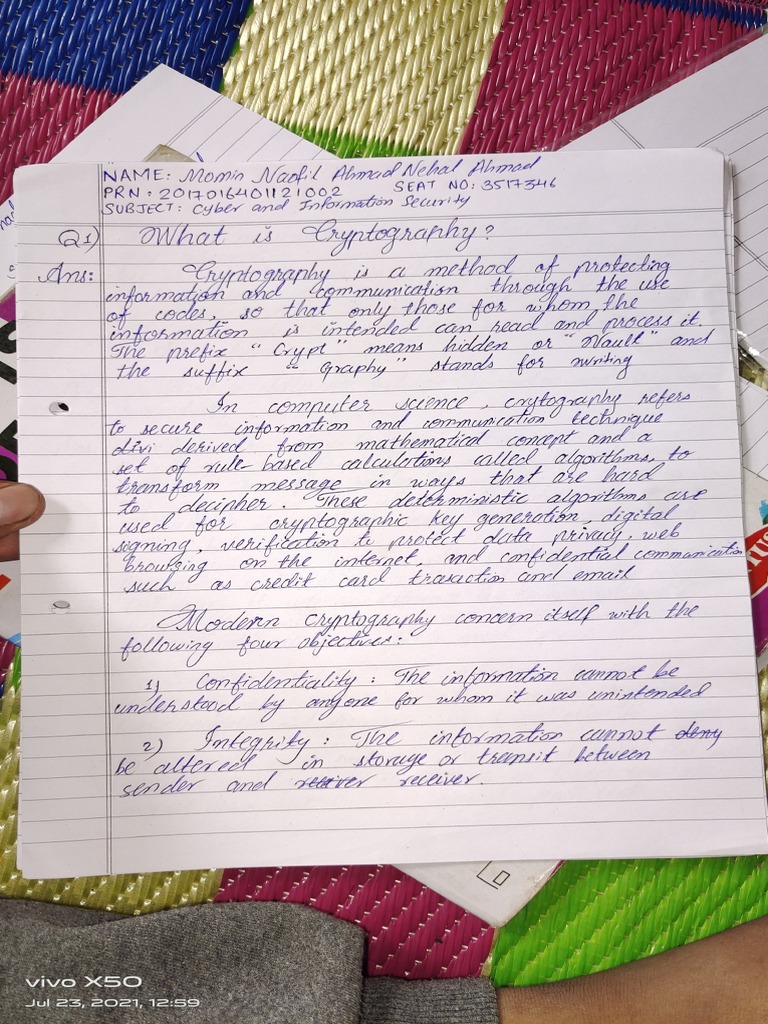 NAME: Momin Naofil Ahmad Nehal Ahmad
PRN: 2017016401121002 SEAT NO: 3517346
SUBJECT: Cyber and Information Security
Q1) What is Cryptography?
Ans: Cryptography is a method of protecting
information and communication through the use
of codes, so that only those for whom the
information is intended can read and process it.
The prefix "Crypt" means hidden or "Vault" and
the suffix "graphy" stands for writing
In computer science, crytography refers
to secure information and communication technique
divi derived from mathematical concept and a
set of rule-based calculations called algorithms, to
transform message in ways that are hard
to decipher. These deterministic algorithms are
used for cryptographic key generation, digital
signing, verification to protect data privacy, web
browsing on the internet, and confidential communication
such as credit card trasaction and email
Modern cryptography concern itself with the
following four objectives:
1) Confidentiality: The information cannot be
understood by anyone for whom it was unintended
2) Integrity: The information cannot deny
be altered in storage or transit between
sender and receiver.
vivo X50
Jul 23, 2021, 12:59